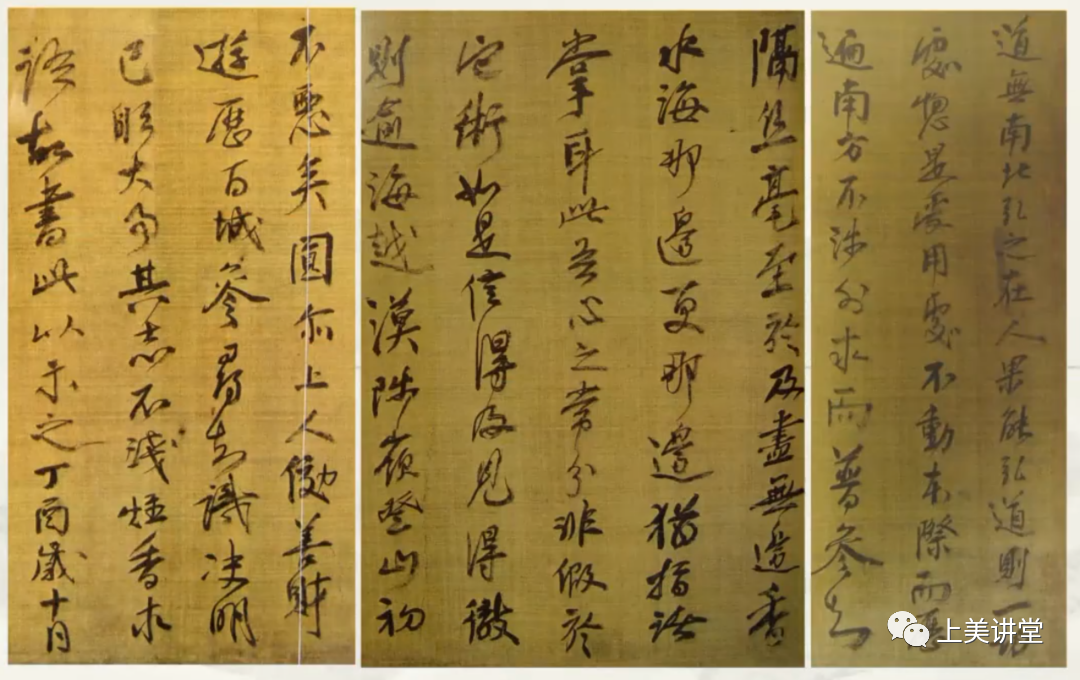 道無南北弘之在人果能弘道則一切
處惣是受用處不動本際而歷
遍南方不涉外求而普參知
隔絲毫至於及盡無邊香
水海那邊更那邊猶指諸
掌耳此吾心之常分非假於
它術如是信得及見得徹
則逾海越漠陟嶺登山初
不惡矣圓尔上人効善財
遊歷百城參尋知識決明
己躬大事其志不淺炷香求
語故書此以示之丁酉歲十月
上美讲堂